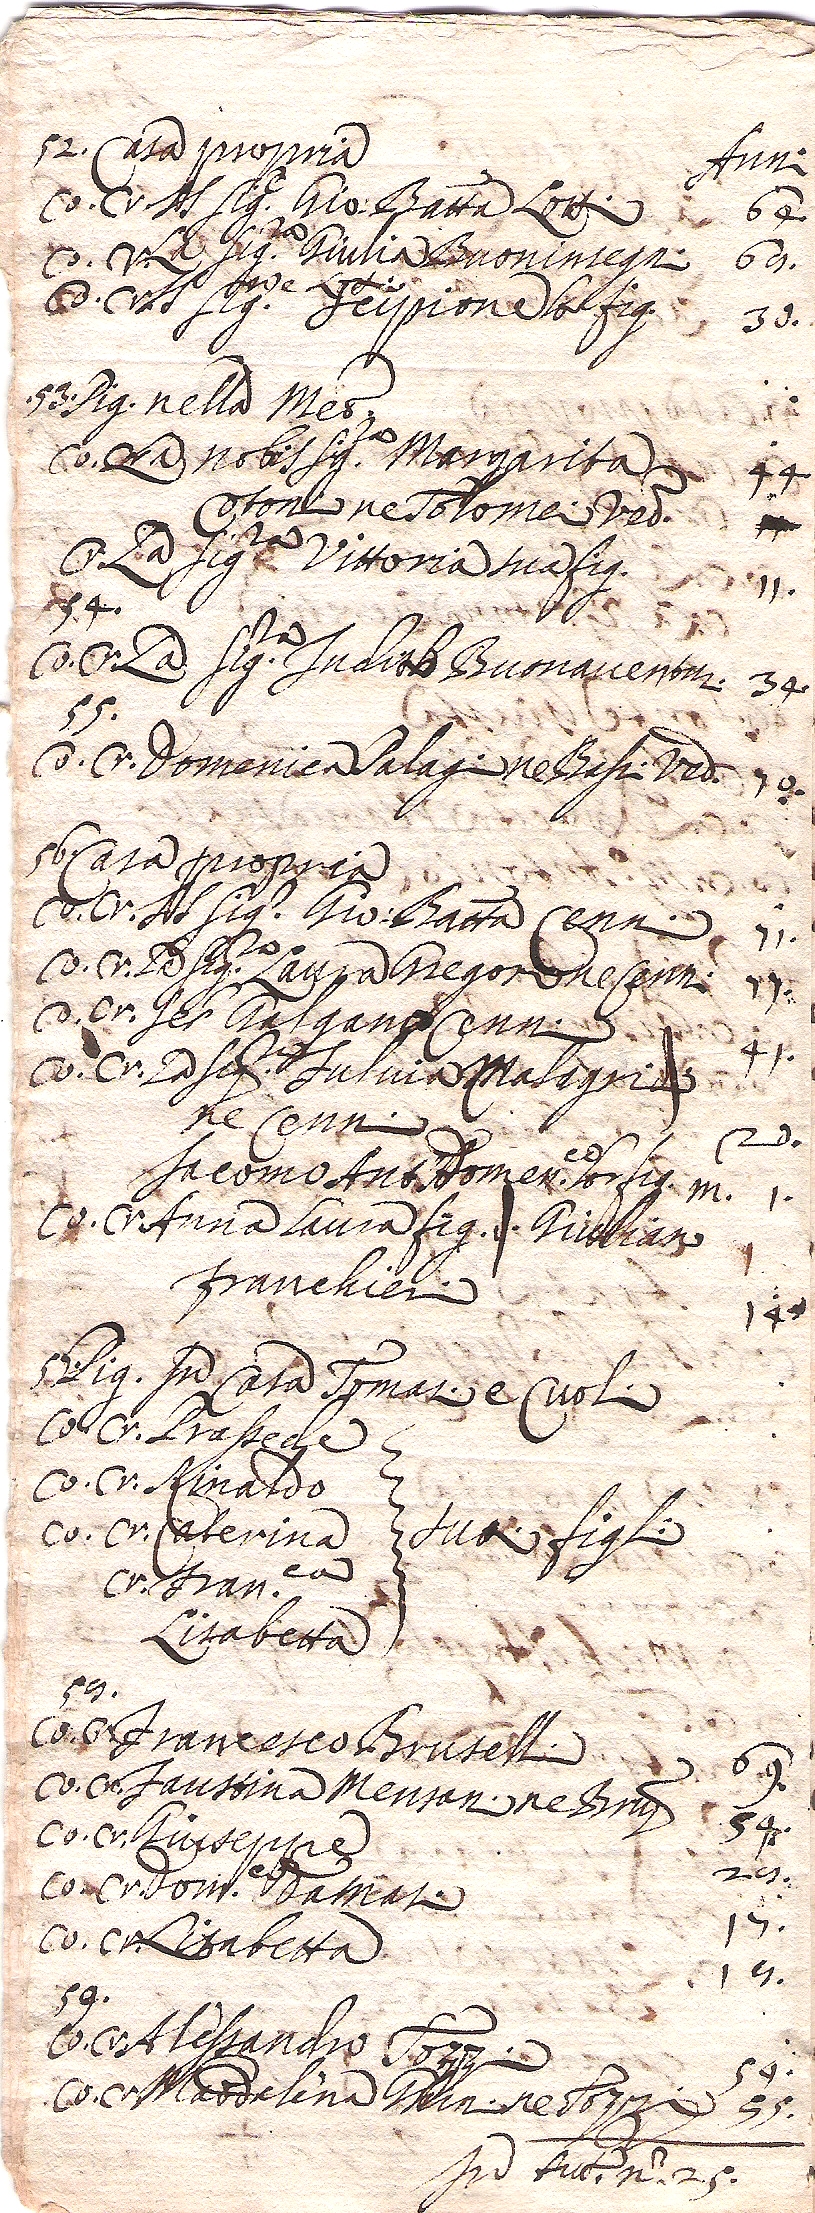 52. Casa propria Anni
Co. Cr. Il Sig.r Gio: Batta Lotti 64.
Co. Cr. La Sig.ra Giulia Buoninsegni 69.
ne Lotti
Co. Cr. Il Sig.r Scipione lor fig. 38.
53. Pig. nella Med.a
Co. Cr. La nobil Sig.ra Margarita 44
Cotoni ne Tolomei Ved.
Cr. La Sig.ra Vittoria sua fig. 11.
54.
Co. Cr. La Sig.ra Buonaventuri 34.
55.
Co. Cr. Domenica Palagi ne Ved. 70.
56. Casa propria
Co. Cr. Il Sig.r Gio: Batta Cenni 71.
Co. Cr. La Sig.ra Laura Gregori ne Cenni 77.
Co. Cr. Ser Galgano Cenni 41.
Co. Cr. La Sig.ra Fulvia
ne Cenni 28.
Jacomo Ant. Domen.co lor fig. m. 1.
Co. Cr. Anna Laura fig. Giulian
Franchieri 14
57. Pig. In Casa Tomasi e
Co. Cr. Prassede
Co. Cr. Rinaldo
Co. Cr. Caterina suoi figli
Cr. Fran.ca
Lisabetta
58.
Co. Cr. Francesco Bruselli 69.
Co. Cr. Faustina ne Brus 54.
Co. Cr. Giuseppe 29.
Co. Cr. Dom.co Damas. 17.
Co. Cr. Lisabetta 19.
59.
Co. Cr. Alessandro Tozzi 59.
Co. Cr. Maddalena Ghini ne Tozzi 55.
In tutt. n.o 25.